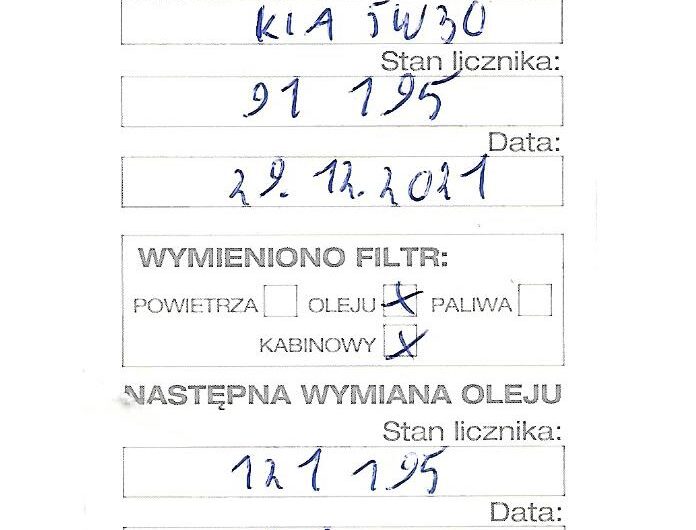 KIA 5W30
Stan licznika:
91 195
Data:
29.12.2021
WYMIENIONO FILTR:
POWIETRZA OLEJU X PALIWA
KABINOWY X
NASTĘPNA WYMIANA OLEJU
Stan licznika:
121 195
Data: